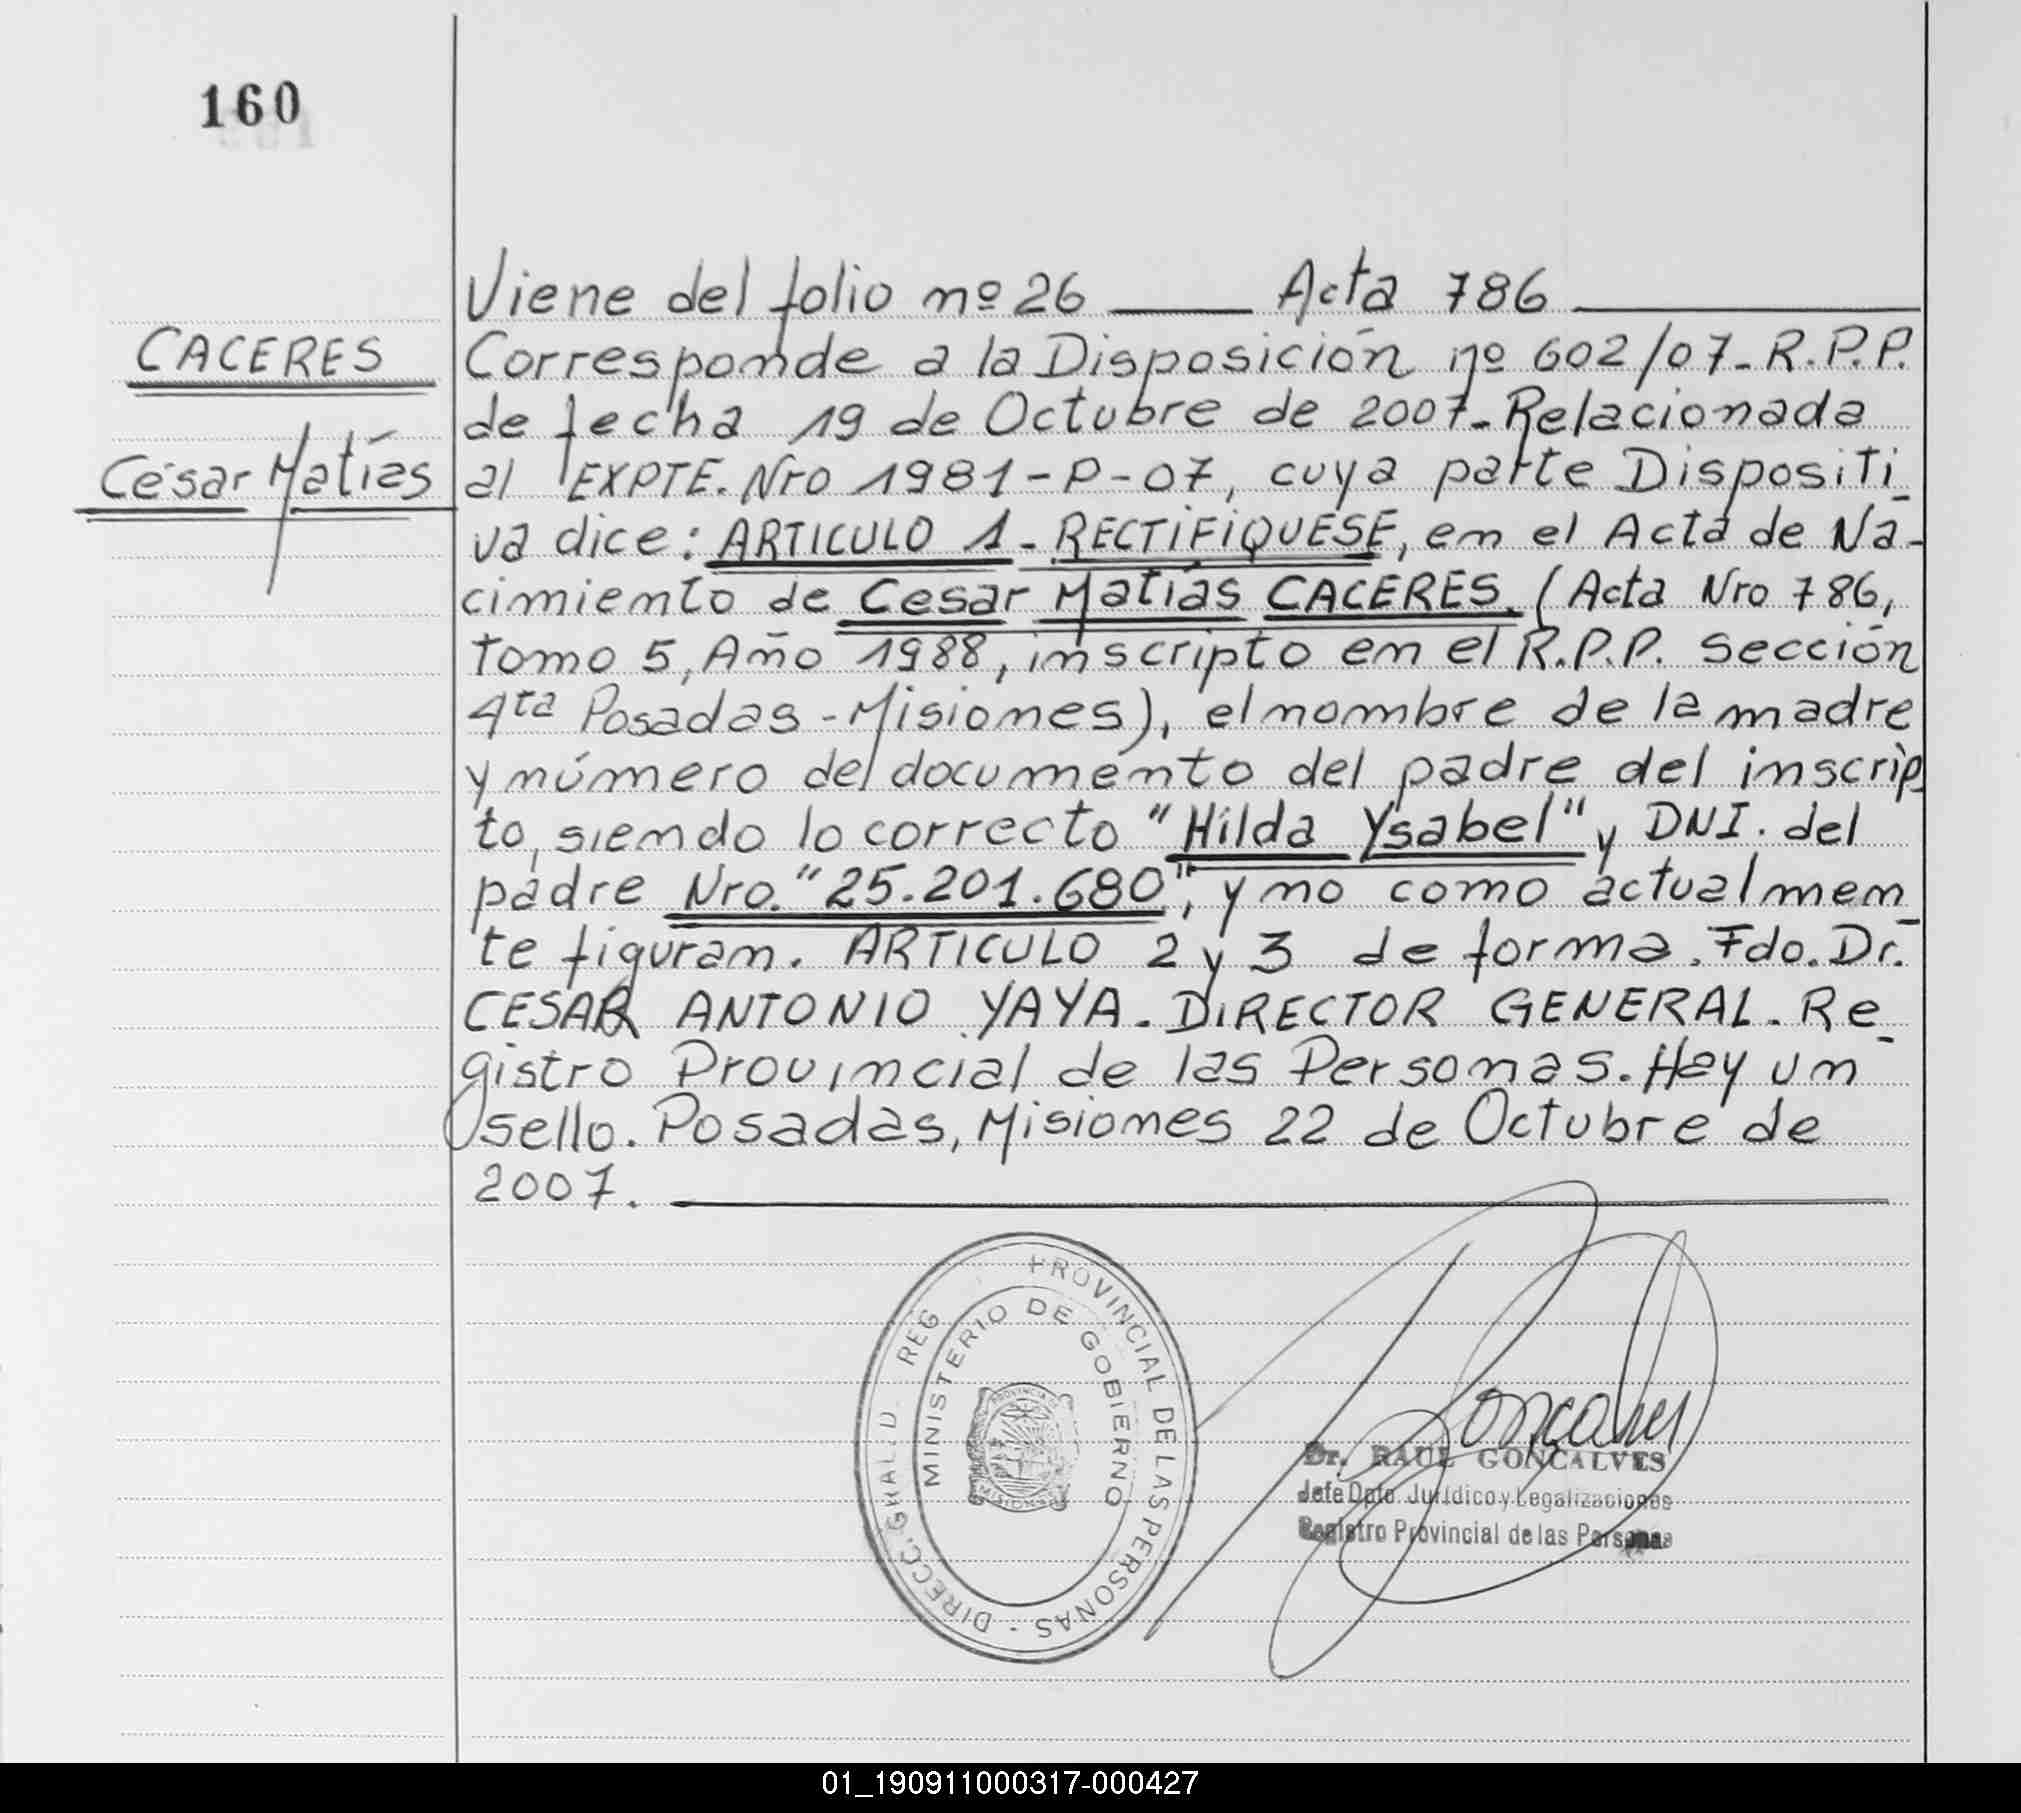 160
CACERES
César Matías
Viene del folio nº 26 ——— Acta 786 ———
Corresponde a la Disposición nº 602/07-R.P.P.
de fecha 19 de Octubre de 2007-Relacionada
al EXPTE. Nro 1981-P-07, cuya parte Dispositi-
va dice: ARTICULO 1-RECTIFIQUESE, en el Acta de Na-
cimiento de Cesar Matías CACERES. (Acta Nro 786,
tomo 5, Año 1988, inscripto en el R.P.P. sección
4ta Posadas-Misiones), el nombre de la madre
y número del documento del padre del inscrip-
to, siendo lo correcto "Hilda Ysabel" y DNI. del
padre Nro. "25.201.680", y no como actualmen-
te figuran. ARTICULO 2 y 3 de forma. Fdo. Dr.
CESAR ANTONIO YAYA. DIRECTOR GENERAL. Re-
gistro Provincial de las Personas. Hay un
sello. Posadas, Misiones 22 de Octubre de
2007. ———
DIRECC. GRAL. D. REG PROVINCIAL DE LAS PERSONAS -
MINISTERIO DE GOBIERNO
PROVINCIA
MISIONES
Dr. RAUL GONÇALVES
Jefe Dpto. Jurídico y Legalizaciones
Registro Provincial de las Personas
01_190911000317-000427